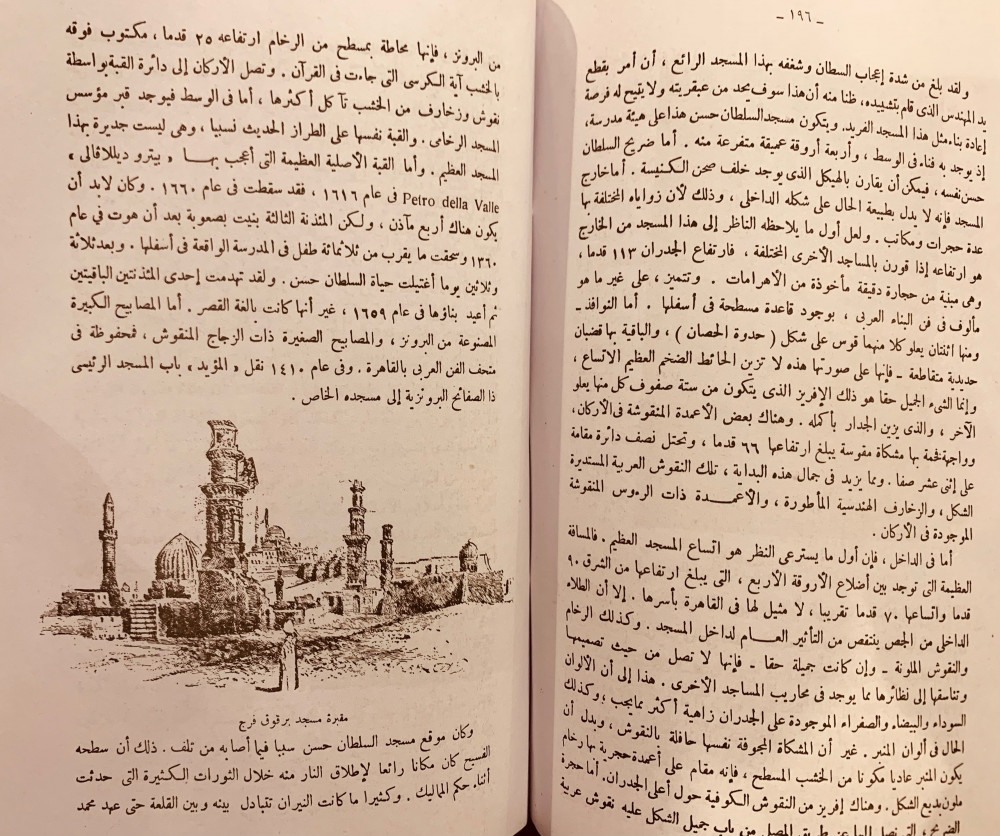 ـ ١٩٦ ـ
ولقد بلغ من شدة إعجاب السلطان وشغفه بهذا المسجد الرائع ، أن أمر بقطع
يد المهندس الذى قام بتشييده، ظنا منه أن هذا سوف يحد من عبقريته ولا يتيح له فرصة
إعادة بناء مثل هذا المسجد الفريد. ويتكون مسجد السلطان حسن هذا على هيئة مدرسة،
إذ يوجد به فناء فى الوسط ، وأربعة أروقة عميقة متفرعة منه . أما ضريح السلطان
حسن نفسه ، فيمكن أن يقارن بالهيكل الذى يوجد خلف صحن الكنيسة . أما خارج
المسجد فإنه لا يدل بطبيعة الحال على شكله الداخلى ، وذلك لأن زواياه المختلفة بها
عدة حجرات ومكاتب . ولعل أول ما يلاحظه الناظر إلى هذا المسجد من الخارج
هو ارتفاعه إذا قورن بالمساجد الأخرى المختلفة ، فارتفاع الجدران ١١٣ قدما ،
وهى مبنية من حجارة دقيقة مأخوذة من الأهرامات . وتتميز ، على غير ما هو
مألوف فى فن البناء العربى ، بوجود قاعدة مسطحة فى أسفلها . أما النوافذ ـ
ومنها اثنتان يعلو كلا منهما قوس على شكل ( حدوة الحصان ) ، والباقية بها قضبان
حديدية متقاطعة ـ فإنها على صورتها هذه لا تزين الحائط الضخم العظيم الاتساع ،
وإنما الشىء الجميل حقا هو ذلك الإفريز الذى يتكون من ستة صفوف كل منها يعلو
الآخر ، والذى يزين الجدار بأكمله . وهناك بعض الأعمدة المنقوشة فى الأركان،
وواجهة فخمة بها مشكاة مقوسة يبلغ ارتفاعها ٦٦ قدما ، وتحتل نصف دائرة مقامة
على إثنى عشر صفا . ومما يزيد فى جمال هذه البداية ، تلك النقوش العربية المستديرة
الشكل ، والزخارف الهندسية المأطورة ، والأعمـــدة ذات الرءوس المنقوشة
الموجودة فى الأركان .
أما فى الداخل ، فإن أول ما يسترعى النظر هو اتساع المسجد العظيم . فالمسافة
العظيمة التى توجد بين أضلاع الأروقة الأربع ، التى يبلغ ارتفاعها من الشرق ٩٠
قدما واتساعها ٧٠ قدما تقريبا ، لا مثيل لها فى القاهرة بأسرها . إلا أن الطلاء
الداخلى من الجص ينتقص من التأثير العــام لداخل المسجد . وكذلك الرخام
والنقوش الملونة ـ وإن كانت جميلة حقا ـ فإنها لا تصل من حيث تصميمها
وتناسقها إلى نظائرها مما يوجد فى محاريب المساجد الأخرى . هذا إلى أن الألوان
السوداء والبيضاء والصفراء الموجودة على الجدران زاهية أكثر مما يجب ، وكذلك
الحال فى ألوان المنبر . غير أن المشكاة المجوفة نفسها حافلة بالنقوش ، وبدل أن
يكون المنبر عاديا مكونا من الخشب المسطح ، فإنه مقام على أعمدة حجرية بها رخام
ملون بديع الشكل . وهناك إفريز من النقوش الكوفية حول أعلى الجدران. أما حجرة
التى نصل إليها عن طريق المصلى من باب جميل الشكل عليه نقوش عربية
من البرونز ، فإنها محاطة بمسطح من الرخام ارتفاعه ٢٥ قدما ، مكتوب فوقه
بالخشب آية الكرسى التى جاءت فى القرآن . وتصل الأركان إلى دائرة القبة بواسطة
نقوش وزخارف من الخشب تآكل أكثرها ، أما فى الوسط فيوجد قبر مؤسس
المسجد الرخامى . والقبة نفسها على الطراز الحديث نسبيا ، وهى ليست جديرة بهذا
المسجد العظيم . وأما القبة الأصلية العظيمة التى أعجب بهــا « بيترو ديللافالى »
Petro della Valle فى عام ١٦١٦ ، فقد سقطت فى عام ١٦٦٠ . وكان لابد أن
يكون هناك أربع مآذن ، ولكن المئذنة الثالثة بنيت بصعوبة بعد أن هوت في عام
١٣٦٠ وسحقت ما يقرب من ثلاثمائة طفل فى المدرسة الواقعة فى أسفلها . وبعد ثلاثة
وثلاثين يوما أغتيلت حياة السلطان حسن . ولقد تهدمت إحدى المئذنتين الباقيتين
ثم أعيد بناؤها فى عام ١٦٥٩ ، غير أنها كانت بالغة القصر . أما المصابيح الكبيرة
المصنوعة من البرونز ، والمصابيح الصغيرة ذات الزجاج المنقوش ، فمحفوظة فى
متحف الفن العربى بالقاهرة . وفى عام ١٤١٠ نقل « المؤيد » باب المسجد الرئيسى
ذا الصفائح البرونزية إلى مسجده الخاص .
مقبرة مسجد برقوق فرج
وكان موقع مسجد السلطان حسن سببا فيما أصابه من تلف . ذلك أن سطحه
الفسيح كان مكانا رائعا لإطلاق النار منه خلال الثورات الكثيرة التى حدثت
أثناء حكم المماليك . وكثيرا ما كانت النيران تتبادل بينه وبين القلعة حتى عهد محمد